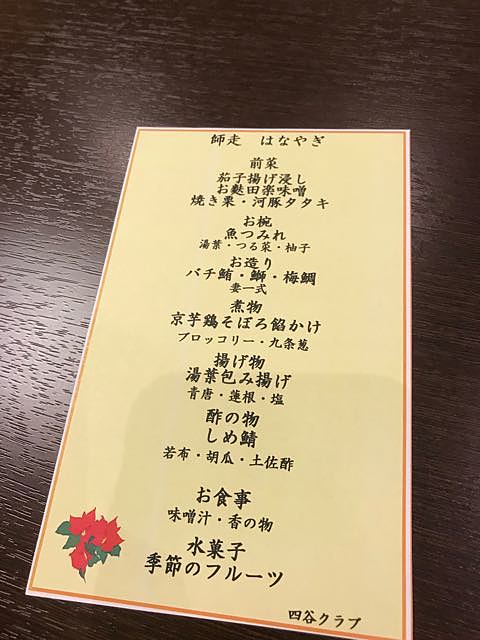 師走　はなやぎ
前菜
茄子揚げ浸し
お麩田楽味噌
焼き栗・河豚タタキ
お椀
魚つみれ
湯葉・つる菜・柚子
お造り
バチ鮪・鰤・梅鯛
妻一式
煮物
京芋鶏そぼろ餡かけ
ブロッコリー・九条葱
揚げ物
湯葉包み揚げ
青唐・蓮根・塩
酢の物
しめ鯖
若布・胡瓜・土佐酢
お食事
味噌汁・香の物
水菓子
季節のフルーツ
四谷クラブ